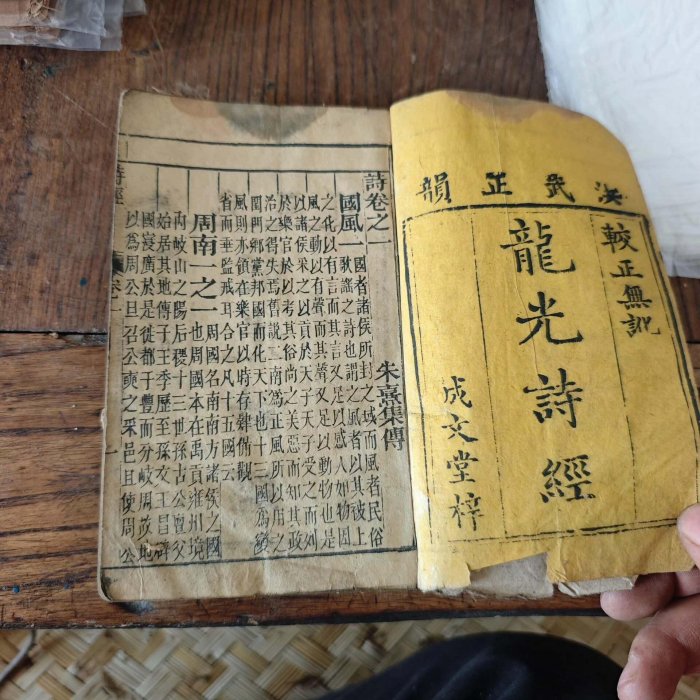 洪武正韻
較正無訛
龍光詩經
成文堂梓
詩卷之一
朱熹集傳
國風一
國者諸侯所封之域而風者民俗
歌謠之詩也謂之風者以其被上
之化以有言而其言又足以感人如物因
風之動以有聲而其聲又足以動物也是
以諸侯采之以貢於天子天子受之而列
於樂官於以考其俗尚之美惡而知其政
治之得失焉舊說二南為正風所以用之
閨門鄉黨邦國而化天下也十三國為變
風則亦領在樂官以時存肄備觀
省而垂監戒耳合之凡十五國云
周南一之一
周國名南南方諸侯之國
也周國本在禹貢雍州境
內岐山之陽后稷十三世孫古公亶父
始居其地傳子王季歷至孫文王昌辟
國寖廣於是徙都于豐而分岐周故地
以為周公旦召公奭之采邑且使周公
詩經
卷之一